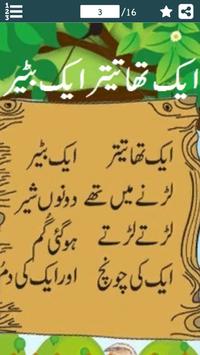 3 /16
ایک تھا تیتر ایک بٹیر
ایک تھا تیتر ایک بٹیر
لڑنے میں تھے دونوں شیر
لڑتے لڑتے ہو گئی گُم
ایک کی چونچ اور ایک کی دُم